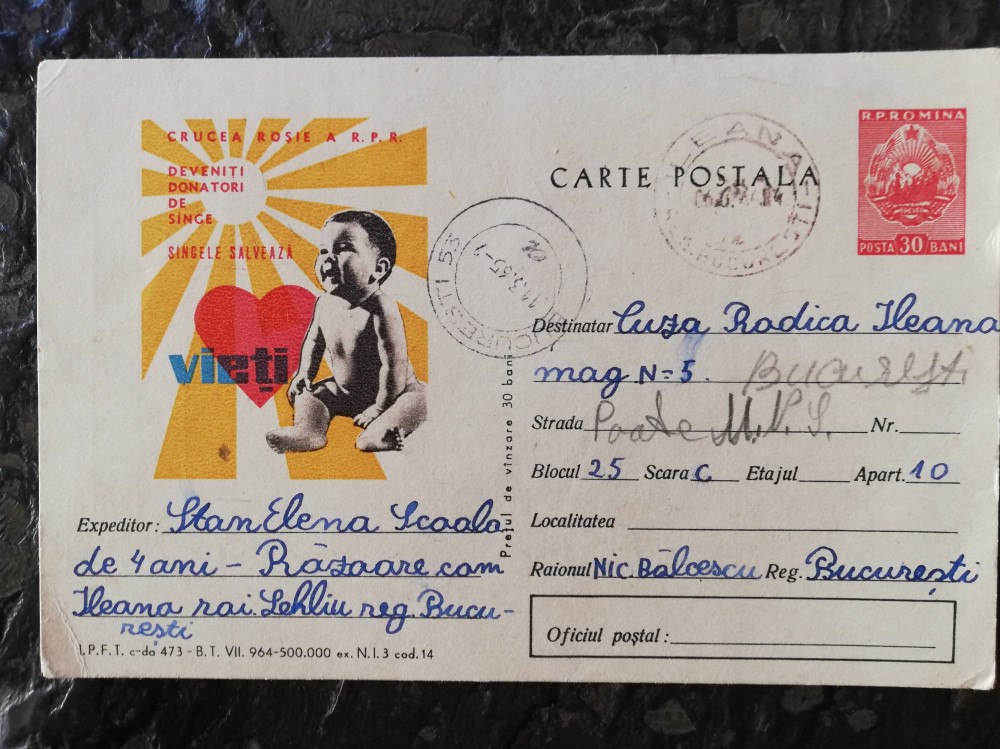 CRUCEA ROȘIE A R.P.R.
DEVENIȚI
DONATORI
DE
SÎNGE
SÎNGELE SALVEAZĂ
vieți
Expeditor: Stan Elena Scoala
de 4 ani - Răzoare com
Ileana rai. Lehliu reg. Bucu-
rești
I.P.F.T. c-da 473 - B.T. VII. 964-500.000 ex. N.I. 3 cod. 14
Prețul de vînzare 30 bani
BUCUREȘTI 53
11.3.65-1
CARTE POSTALA
ILEANA
BUCUREȘTI
R.P.ROMINA
POSTA 30 BANI
Destinatar Cuza Rodica Ileana
mag N=5. București
Strada Poate M.N.S. Nr.
Blocul 25 Scara C Etajul Apart. 10
Localitatea
Raionul Nic. Bălcescu Reg. București
Oficiul poștal: